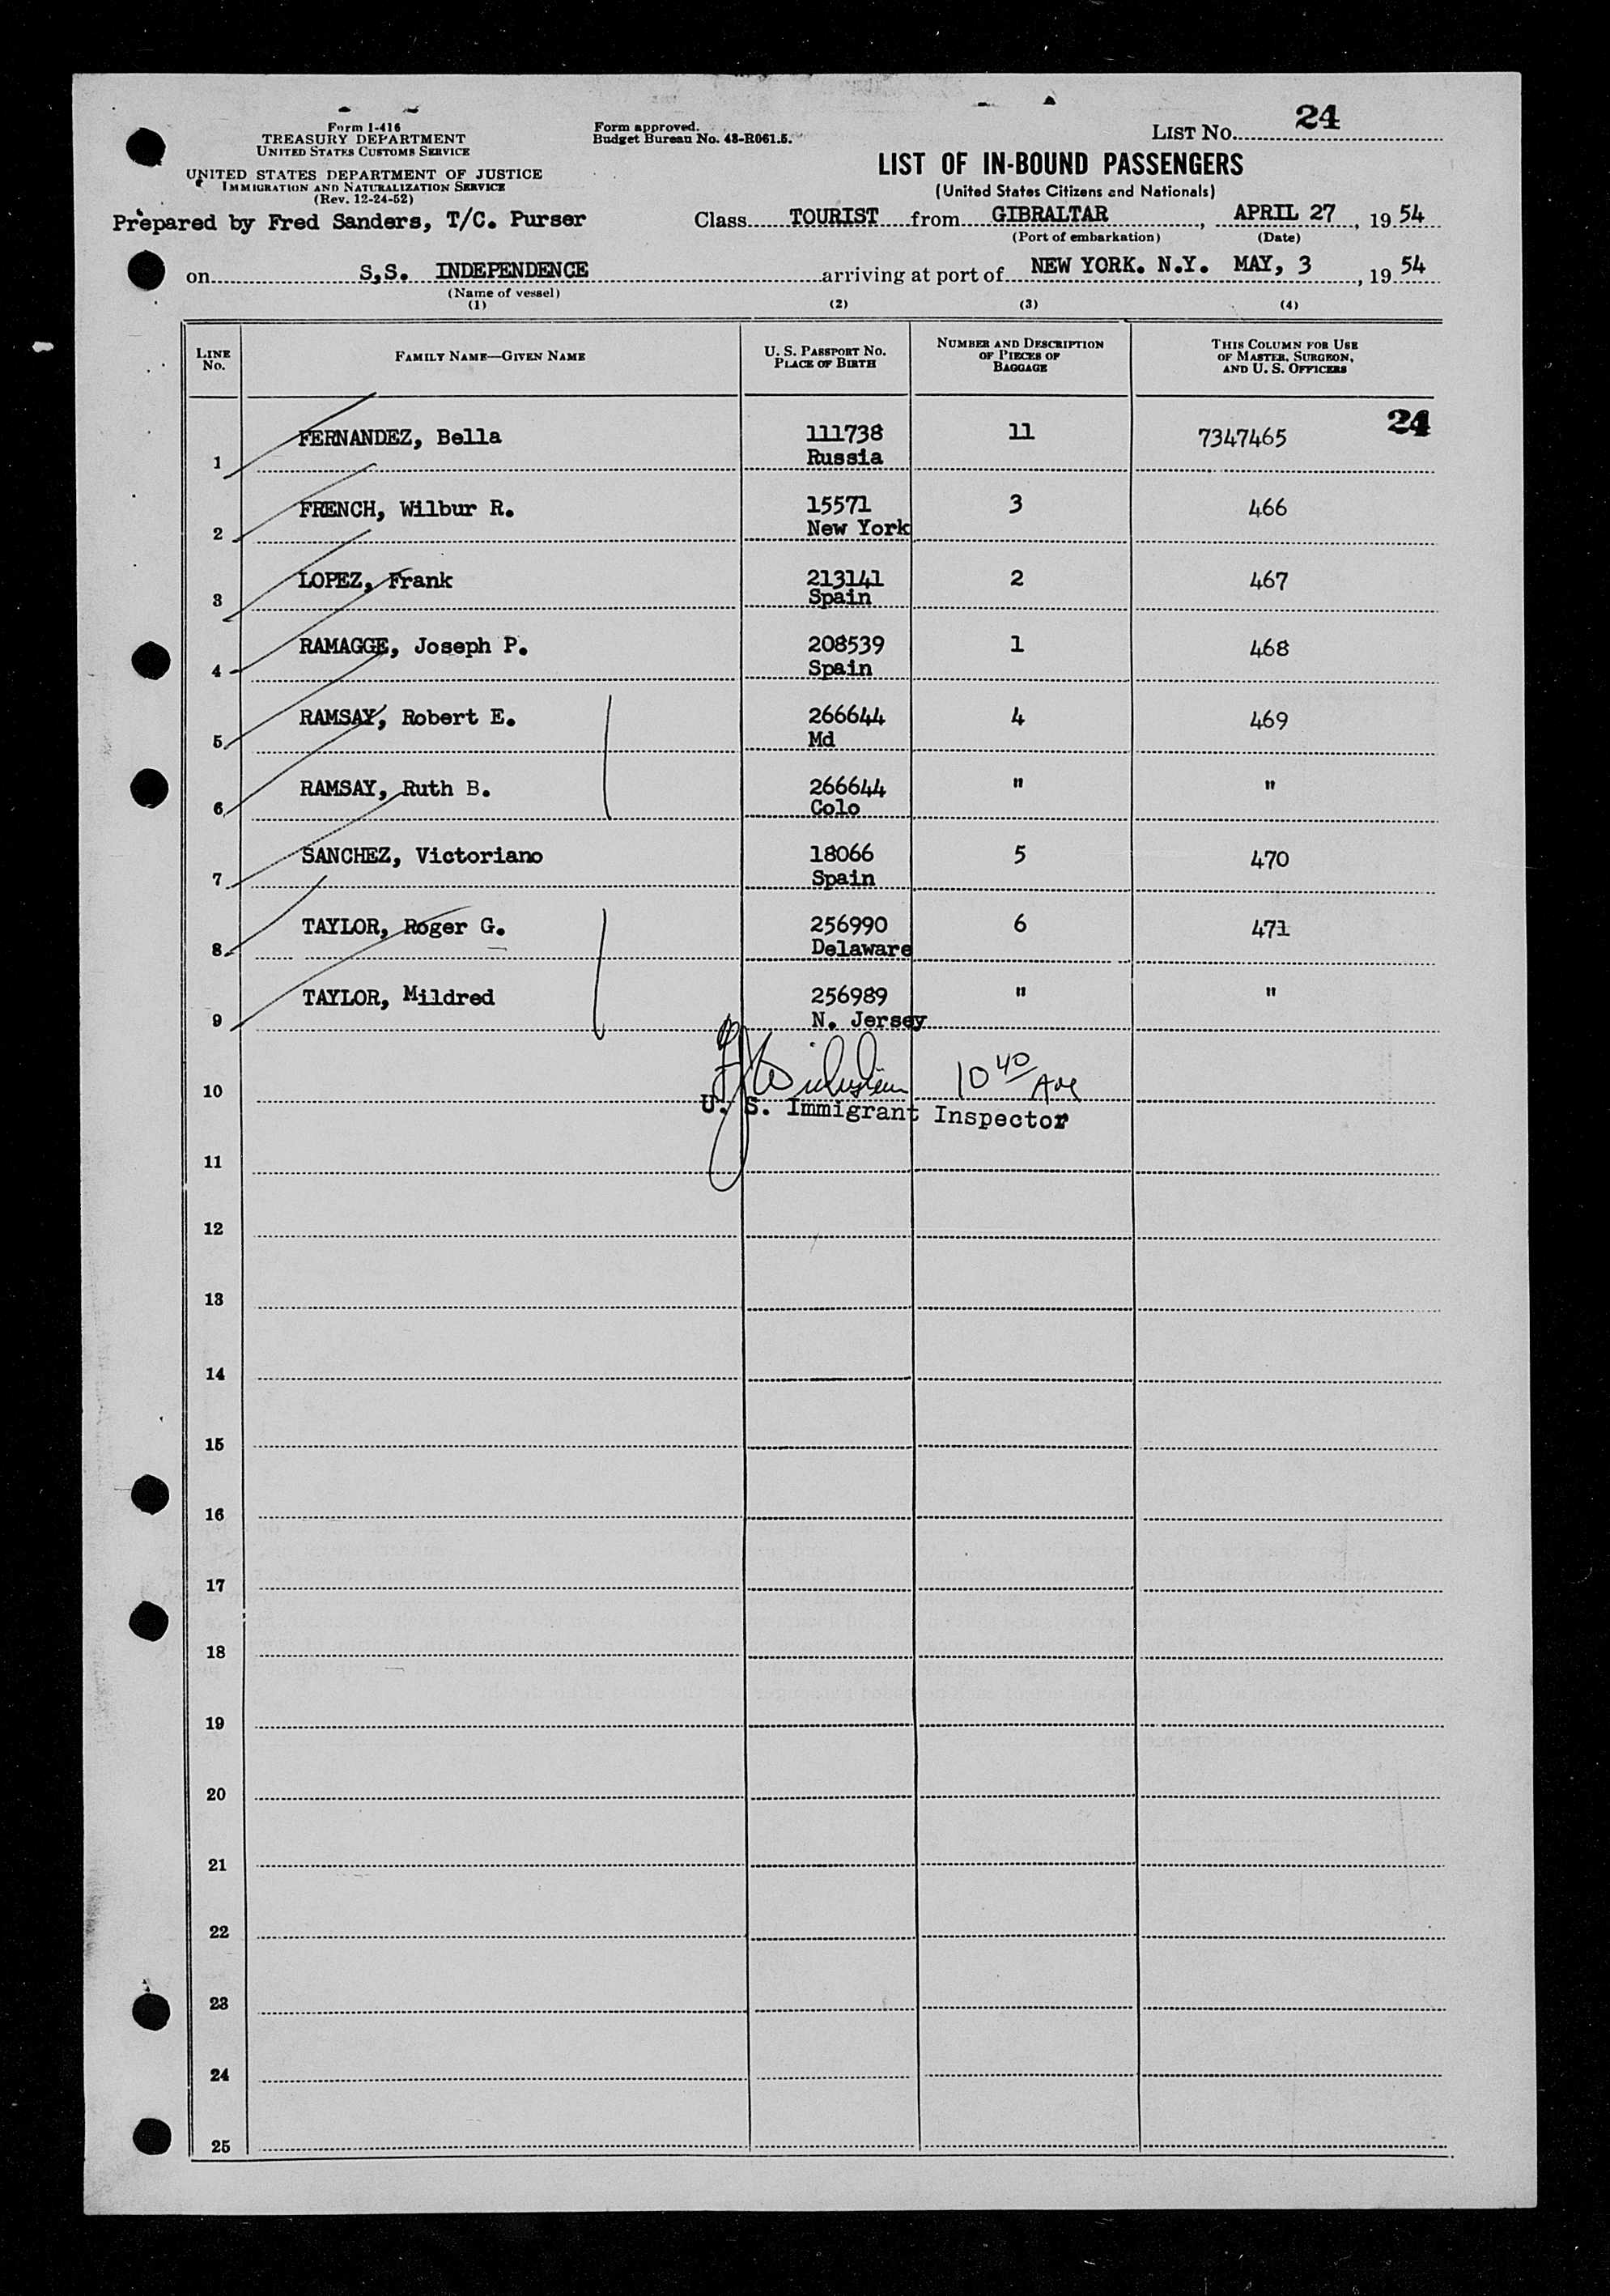 Form I-416
TREASURY DEPARTMENT
UNITED STATES CUSTOMS SERVICE
UNITED STATES DEPARTMENT OF JUSTICE
IMMIGRATION AND NATURALIZATION SERVICE
(Rev. 12-24-52)
Prepared by Fred Sanders, T/C. Purser
Form approved.
Budget Bureau No. 43-R061.5.
LIST NO. 24
LIST OF IN-BOUND PASSENGERS
(United States Citizens and Nationals)
Class TOURIST from GIBRALTAR, APRIL 27, 19 54
(Port of embarkation) (Date)
on S.S. INDEPENDENCE arriving at port of NEW YORK. N.Y. MAY, 3, 19 54
(Name of vessel)
(1) (2) (3) (4)
LINE NO. FAMILY NAME—GIVEN NAME U. S. PASSPORT NO. PLACE OF BIRTH NUMBER AND DESCRIPTION OF PIECES OF BAGGAGE THIS COLUMN FOR USE OF MASTER, SURGEON, AND U. S. OFFICERS
24
1 FERNANDEZ, Bella 111738 Russia 11 7347465
2 FRENCH, Wilbur R. 15571 New York 3 466
3 LOPEZ, Frank 213141 Spain 2 467
4 RAMAGGE, Joseph P. 208539 Spain 1 468
5 RAMSAY, Robert E. 266644 Md 4 469
6 RAMSAY, Ruth B. 266644 Colo " "
7 SANCHEZ, Victoriano 18066 Spain 5 470
8 TAYLOR, Roger G. 256990 Delaware 6 471
9 TAYLOR, Mildred 256989 N. Jersey " "
10 10 40
U. S. Immigrant Inspector
11
12
13
14
15
16
17
18
19
20
21
22
23
24
25